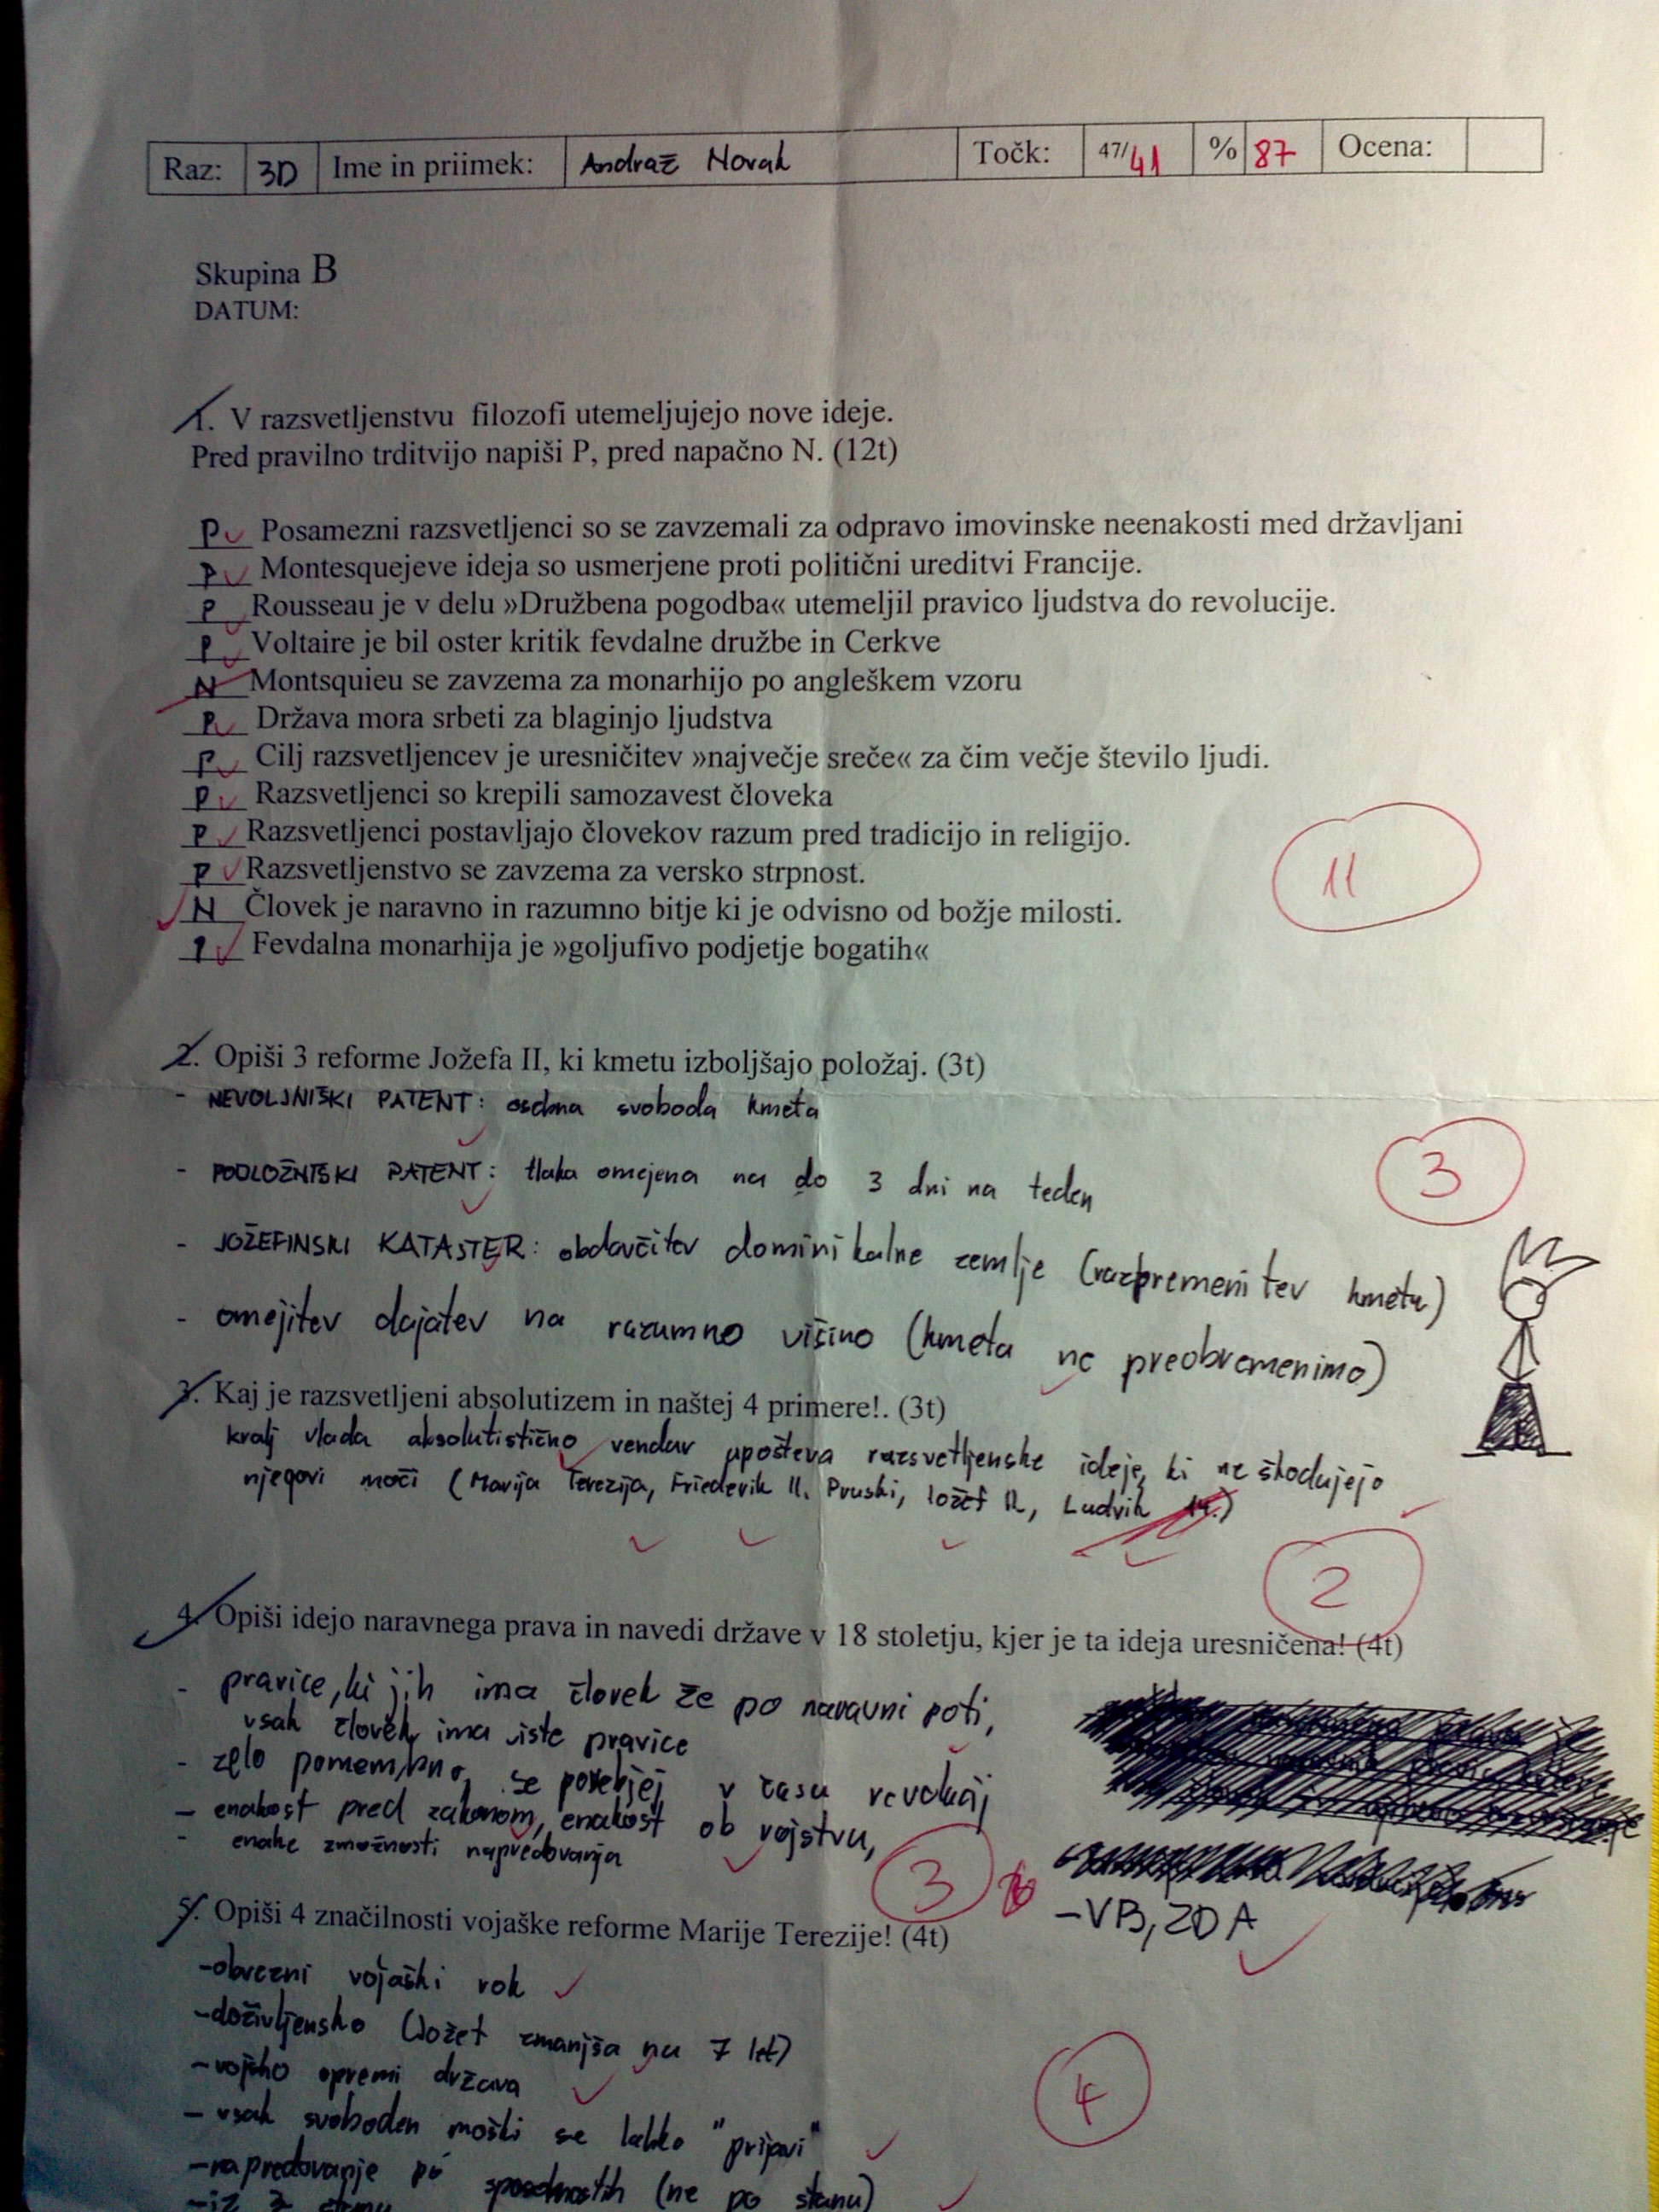 Raz: 3D Ime in priimek: Andraž Novak Točk: 47/41 % 87 Ocena:
Skupina B
DATUM:
1. V razsvetljenstvu filozofi utemeljujejo nove ideje.
Pred pravilno trditvijo napiši P, pred napačno N. (12t)
P Posamezni razsvetljenci so se zavzemali za odpravo imovinske neenakosti med državljani
P Montesquejeve ideja so usmerjene proti politični ureditvi Francije.
P Rousseau je v delu »Družbena pogodba« utemeljil pravico ljudstva do revolucije.
P Voltaire je bil oster kritik fevdalne družbe in Cerkve
N Montsquieu se zavzema za monarhijo po angleškem vzoru
P Država mora srbeti za blaginjo ljudstva
P Cilj razsvetljencev je uresničitev »največje sreče« za čim večje število ljudi.
P Razsvetljenci so krepili samozavest človeka
P Razsvetljenci postavljajo človekov razum pred tradicijo in religijo.
P Razsvetljenstvo se zavzema za versko strpnost.
N Človek je naravno in razumno bitje ki je odvisno od božje milosti.
P Fevdalna monarhija je »goljufivo podjetje bogatih«
11
2. Opiši 3 reforme Jožefa II, ki kmetu izboljšajo položaj. (3t)
- NEVOLJNIŠKI PATENT: osebna svoboda kmeta
- PODLOŽNIŠKI PATENT: tlaka omejena na do 3 dni na teden
3
- JOŽEFINSKI KATASTER: obdavčitev dominikalne zemlje (razbremenitev kmeta)
- omejitev dajatev na razumno višino (kmeta ne preobremenimo)
3. Kaj je razsvetljeni absolutizem in naštej 4 primere!. (3t)
kralj vlada absolutistično vendar upošteva razsvetljenske ideje, ki ne škodujejo
njegovi moči (Marija Terezija, Friederik II. Pruski, Jožef II, Ludvik 14.)
2
4. Opiši idejo naravnega prava in navedi države v 18 stoletju, kjer je ta ideja uresničena! (4t)
- pravice, ki jih ima človek že po naravni poti,
vsak človek ima iste pravice
- zelo pomembno, se v času revolucij
- enakost pred zakonom, enakost ob rojstvu,
- enake zmožnosti napredovanja
3
- VB, ZDA
5. Opiši 4 značilnosti vojaške reforme Marije Terezije! (4t)
- obvezni vojaški rok
- doživljensko (Jožef zmanjša na 7 let)
- vojsko opremi država
4
- vsak svoboden moški se lahko "prijavi"
- napredovanje po sposobnostih (ne po stanu)
- iz 3. stanu